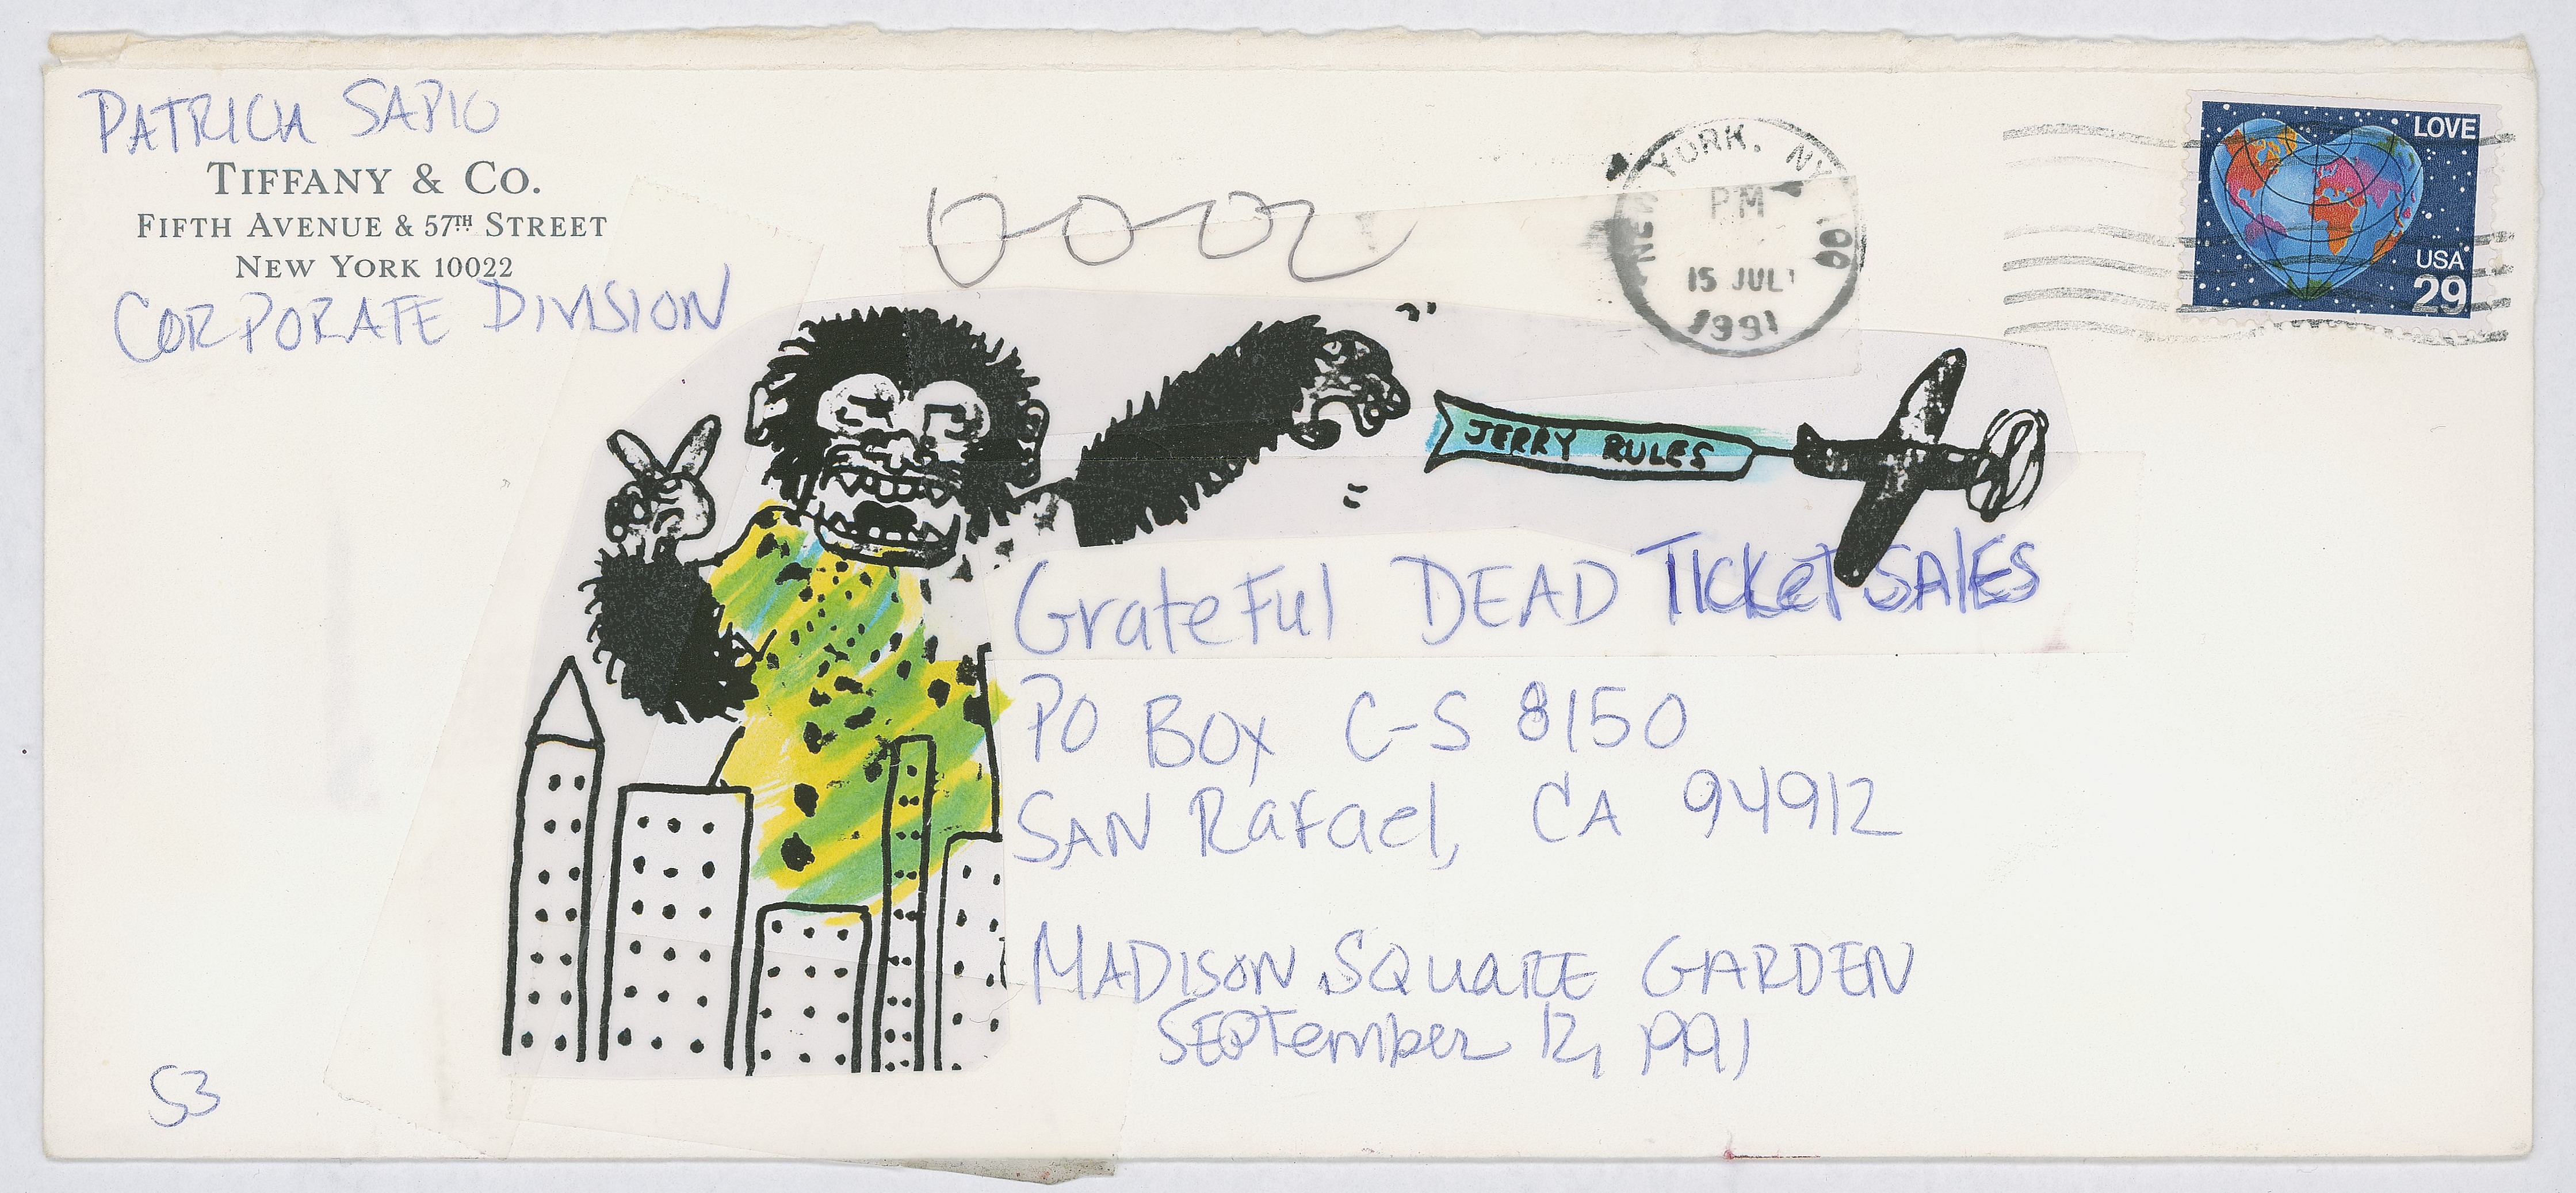 PATRICIA SAPIO
TIFFANY & CO.
FIFTH AVENUE & 57TH STREET
NEW YORK 10022
CORPORATE DIVISION
NEW YORK, NY 100
PM
15 JUL
1991
LOVE
USA
29
JERRY RULES
GrateFul DEAD TICKeT SAlES
PO BOX C-S 8150
SAN RaFael, CA 94912
MADISON SQUARE GARDEN
SEPTember 12, 1991
S3